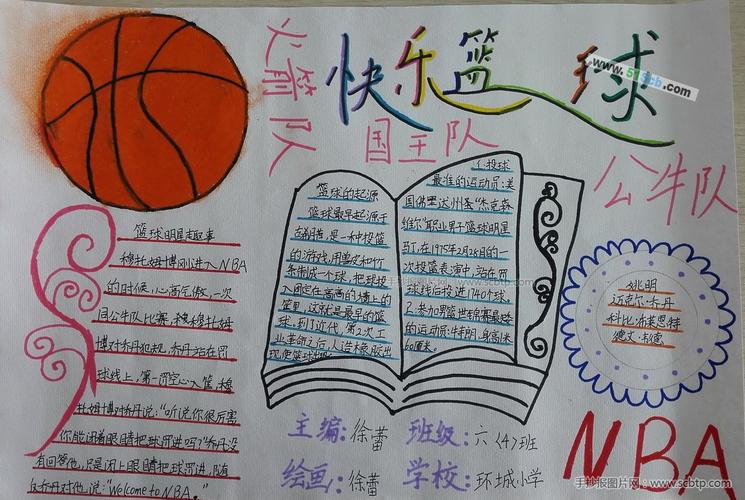 火箭队
快乐篮球
www.51scb.com
国王队
公牛队
篮球明星趣事
穆托姆博刚进入NBA
的时候,心高气傲,一次
同公牛队比赛,穆托姆
博对乔丹犯规,乔丹站在罚
球线上,第一罚空心入篮,穆
托姆博对乔丹说:“听说你很厉害
你能闭着眼睛把球罚进吗?”乔丹没
有回答他,只是闭上眼睛把球罚进,随
后乔丹对他说:“Welcome to NBA。”
篮球的起源
篮球最早起源于
墨西哥,是一种投篮
的游戏,用兽皮和竹
条制成一个球,把球投
入固定在高高的墙上的
篮里,这就是最早的篮
球,到了近代,第2次工
业革命之后,人造橡胶出
现使篮球
1.投球
最准的运动员:美
国佛里达州
维尔”职业男子篮球明星
马丁,在1975年2月28日的一
次投篮表演中,站在罚
球线后投进1740个球,
2.参加男篮
的运动员:
姚明
迈克尔·乔丹
科比·布莱恩特
德文·韦德
主编:徐蕾 班级:六〈4〉班
绘画:徐蕾 学校:环城小学
NBA
手抄报图片网 - www.scbtp.com